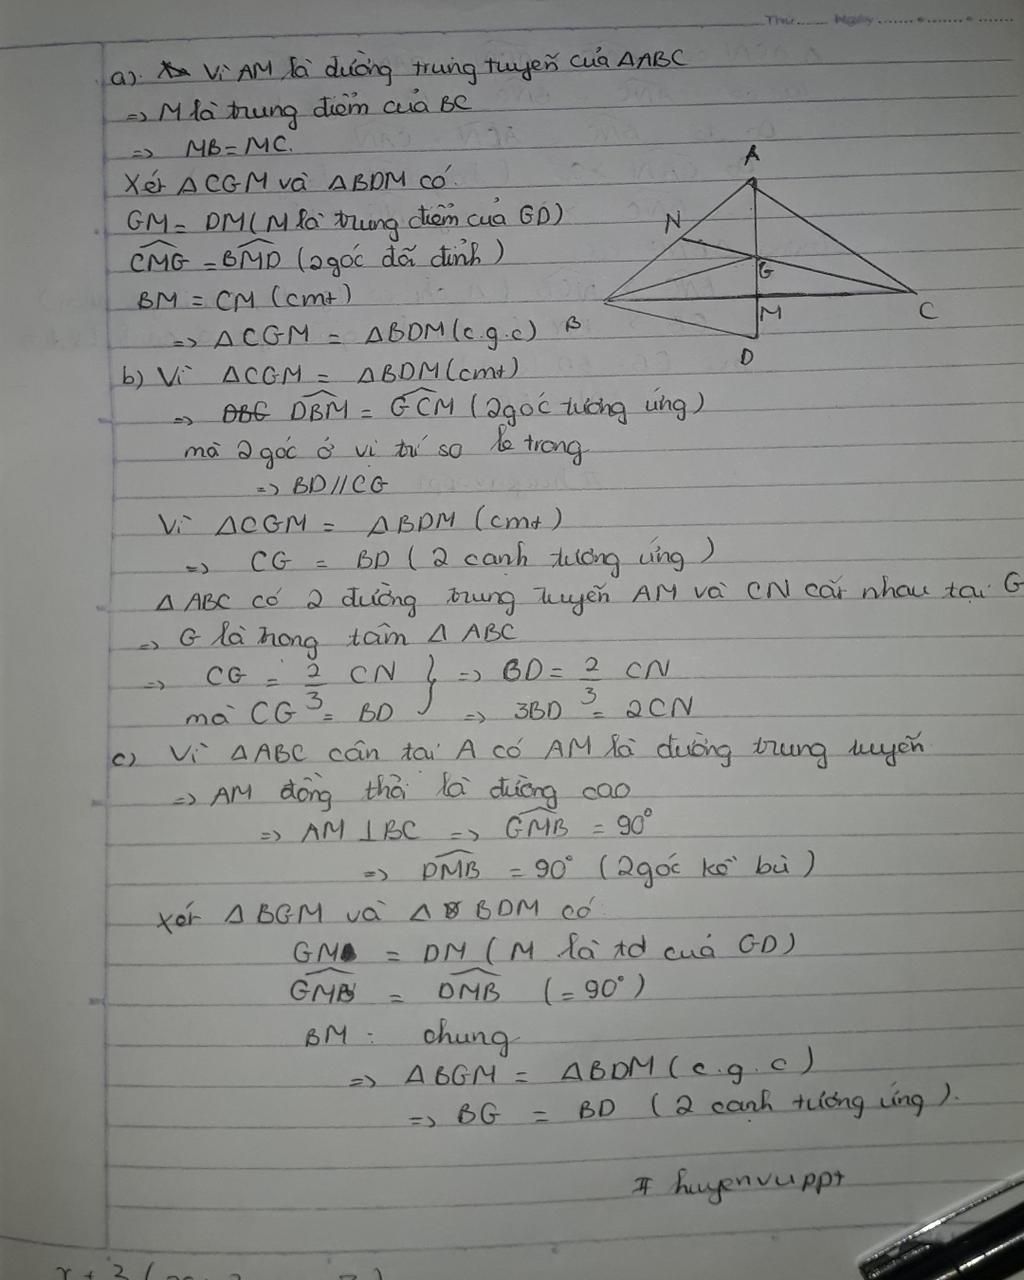 Thứ...... Ngày.......................
a). Vì AM là đường trung tuyến của ΔABC
=> M là trung điểm của BC
=> MB = MC.
Xét ΔCGM và ΔBDM có.
GM = DM (M là trung điểm của GD)
\widehat{CMG} = \widehat{BMD} (2 góc đối đỉnh)
BM = CM (cmt)
=> ΔCGM = ΔBDM (c.g.c)
A
N
G
B
M
C
D
b) Vì ΔCGM = ΔBDM (cmt)
=> \widehat{DBM} = \widehat{GCM} (2 góc tương ứng)
mà 2 góc ở vị trí so le trong
=> BD // CG
Vì ΔCGM = ΔBDM (cmt)
=> CG = BD (2 cạnh tương ứng)
ΔABC có 2 đường trung tuyến AM và CN cắt nhau tại G
=> G là trong tâm ΔABC
=> CG = 2/3 CN } => BD = 2/3 CN
mà CG = BD => 3BD = 2CN
c) Vì ΔABC cân tại A có AM là đường trung tuyến
=> AM đồng thời là đường cao
=> AM ⊥ BC => \widehat{GMB} = 90°
=> \widehat{DMB} = 90° (2 góc kề bù)
Xét ΔBGM và ΔBDM có
GM = DM (M là tđ của GD)
\widehat{GMB} = \widehat{DMB} (= 90°)
BM : chung
=> ΔBGM = ΔBDM (c.g.c)
=> BG = BD (2 cạnh tương ứng).
# huyenvuppt